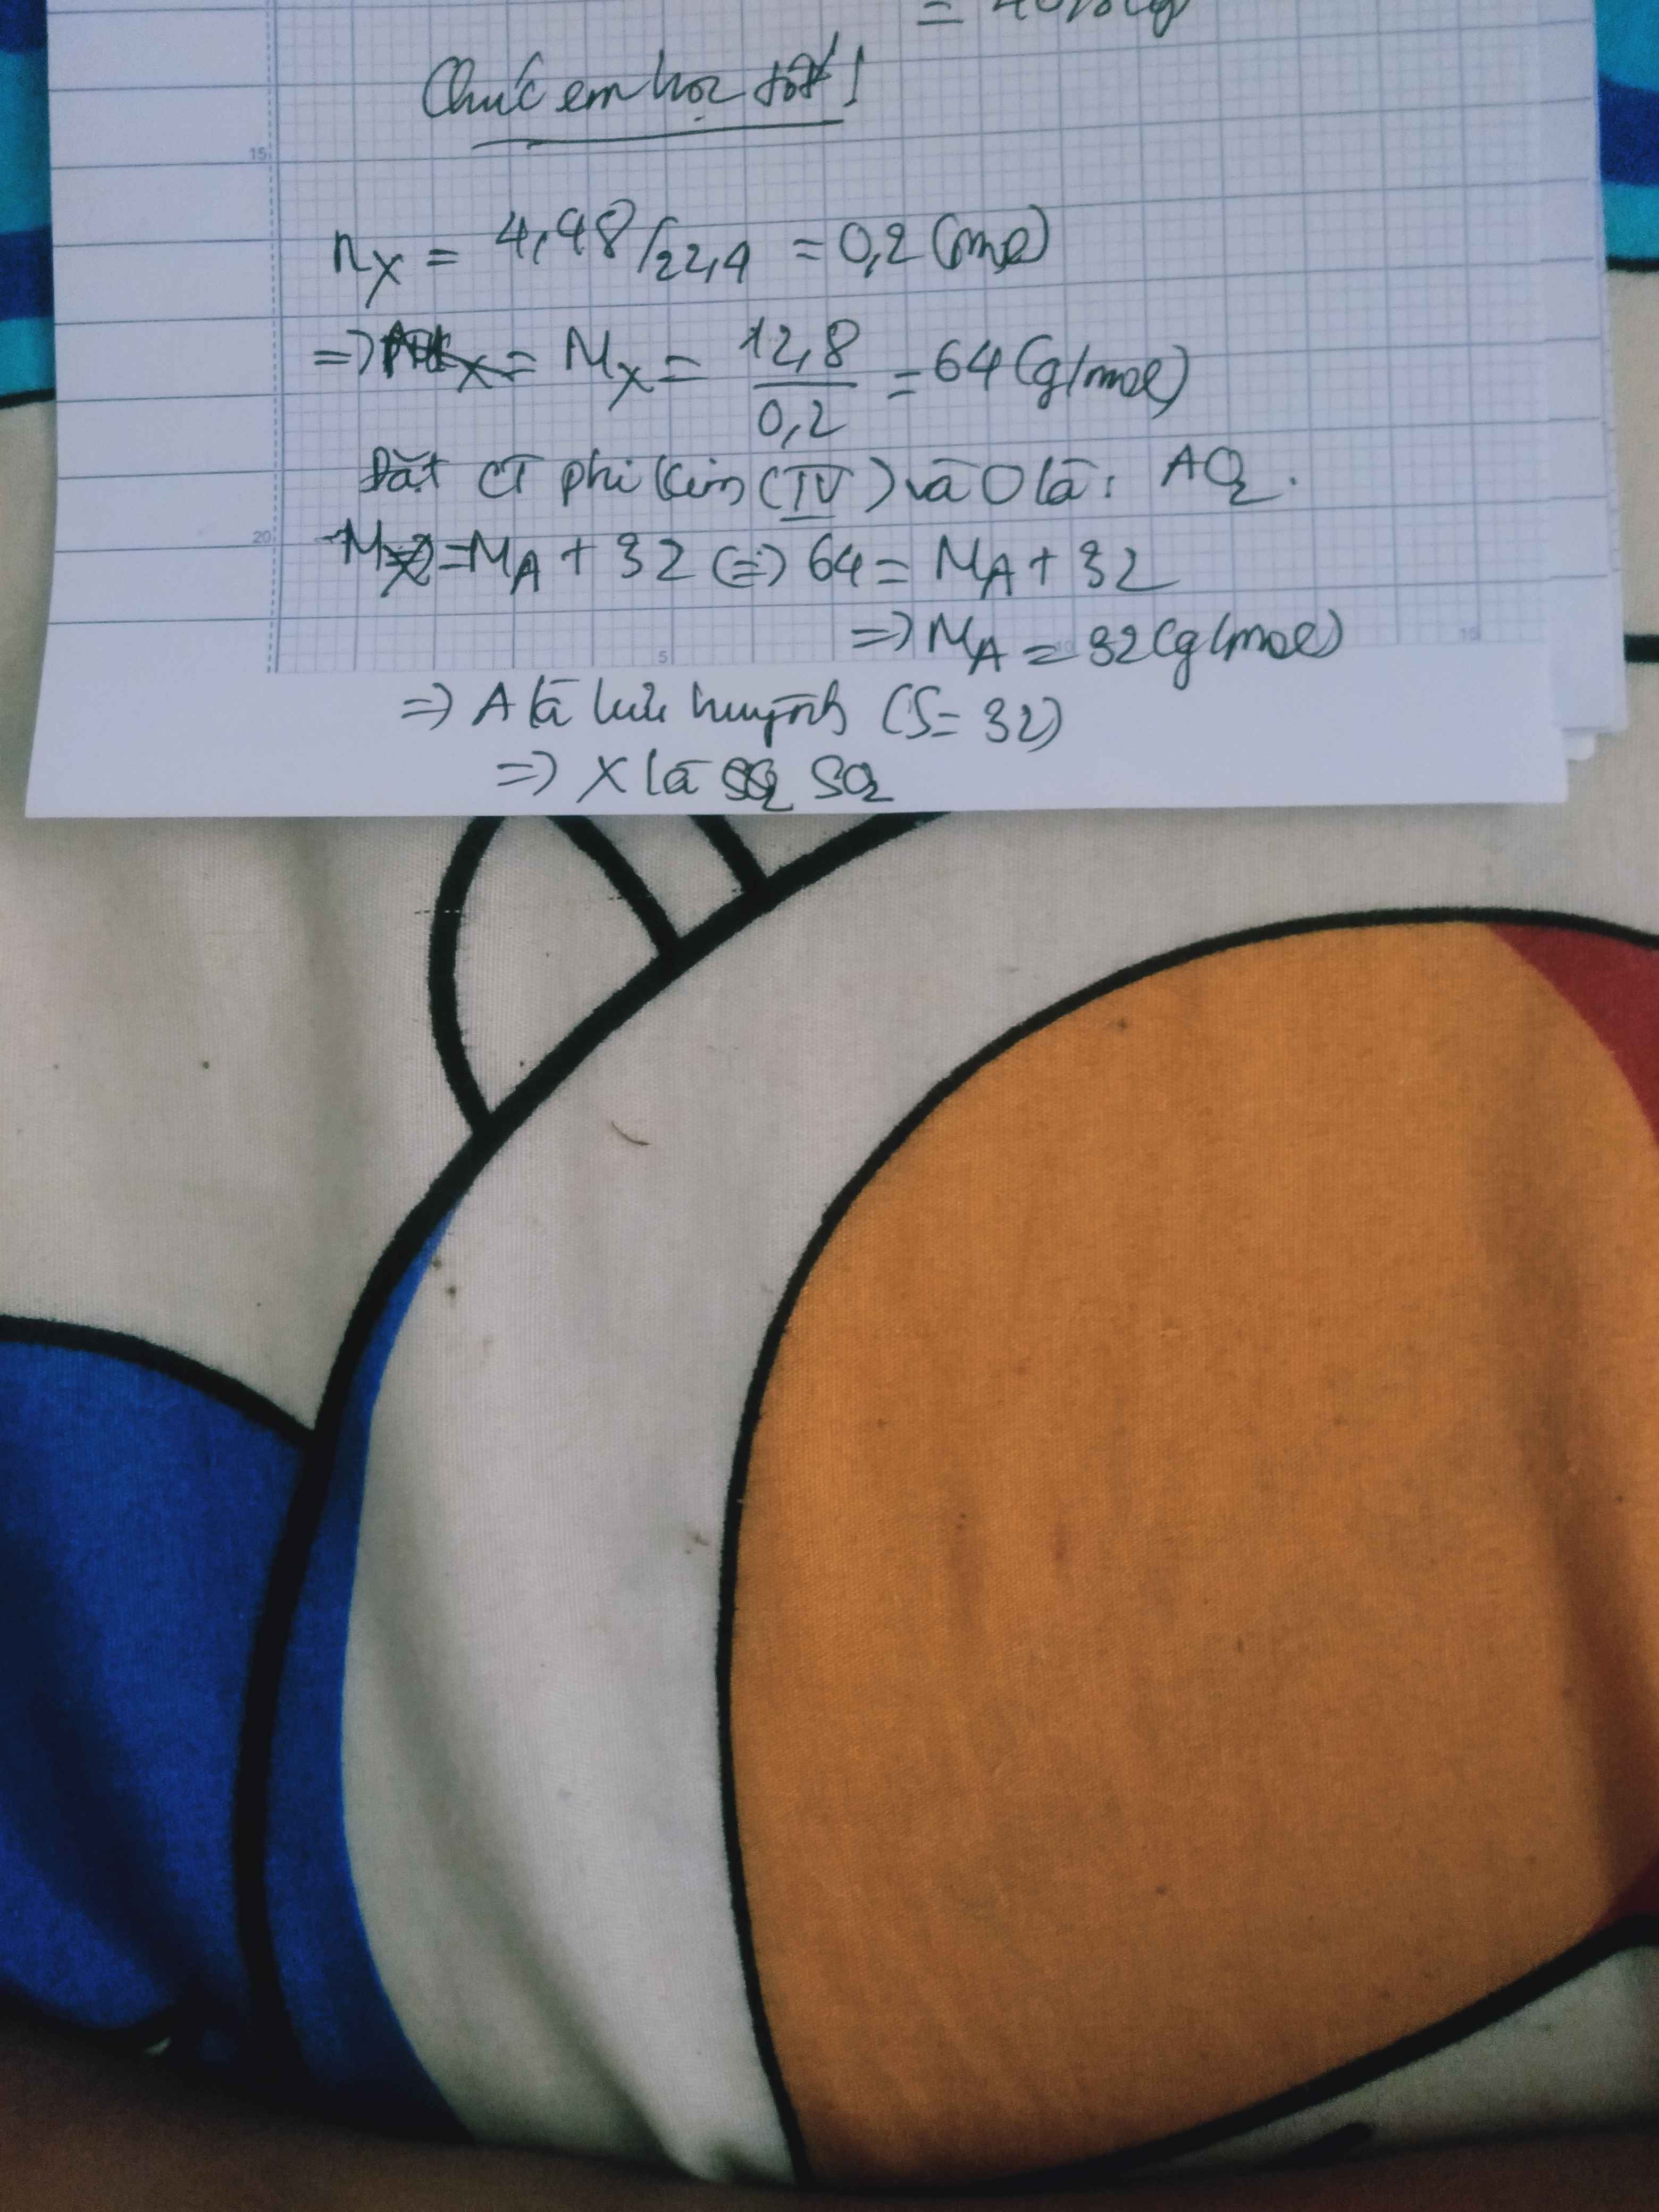 Chúc em học tốt!
15
nX = 4,48/22,4 = 0,2 (mol)
=> MX = 12,8/0,2 = 64 (g/mol)
Đặt CT phi kim (IV) và O là: AO2.
20
MX = MA + 32 <=> 64 = MA + 32
=> MA = 32 (g/mol)
5 10 15
=> A là lưu huỳnh (S = 32)
=> X là SO2 SO2